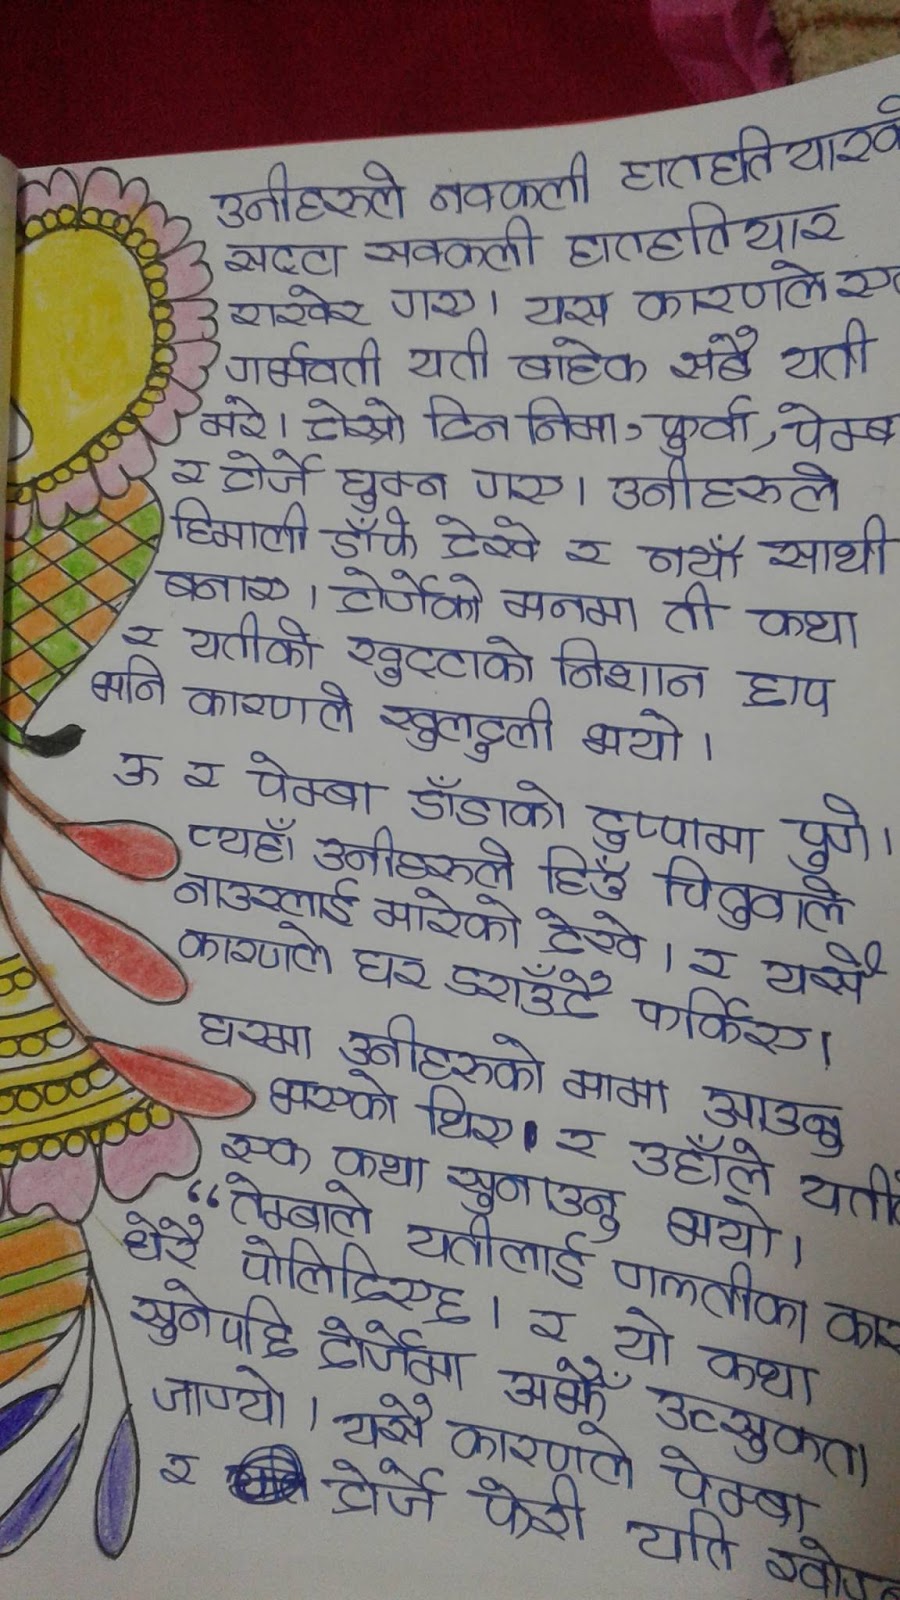 उनीहरुले नक्कली हातहतियारको
सट्टा सक्कली हातहतियार
राखेर गए। यस कारणले एक
गर्भवती यती बाहेक सबै यती
मरे। दोस्रो दिन निमा, फुर्वा, पेम्बा
र दोर्जे घुम्न गए। उनीहरुले
हिमाली डाँफे देखे र नयाँ साथी
बनाए। दोर्जेको मनमा ती कथा
र यतीको खुट्टाको निशान छाप
भनि कारणले खुलदुली भयो।
ऊ र पेम्बा डाँडाको टुप्पामा पुगे।
त्यहाँ उनीहरुले हिउँ चितुवाले
नाउरलाई मारेको देखे। र यसै
कारणले घर डराउँदै फर्किए।
घरमा उनीहरुको मामा आउनु
भएको थिए। र उहाँले यतीको
एक कथा सुनाउनु भयो।
“तेम्बाले यतीलाई गलतीका
धेरै पोलिदिएछ। र यो कथा
सुनेपछि दोर्जेमा अझैँ उत्सुकता
जाग्यो। यसै कारणले पेम्बा
र दोर्जे फेरी यति